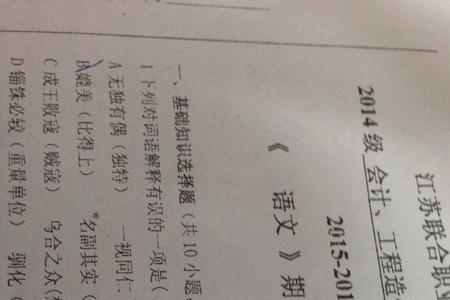 江苏联合职业
2014级 会计、工程造
2015-201
《 语文 》期
一、基础知识选择题（共10小题，
1 下列对词语解释有误的一项是（
A 无独有偶（独特） 一视同仁
B 媲美（比得上） 名副其实（
C 成王败寇（贼寇） 乌合之众（
D 锱铢必较（重量单位） 驯化（